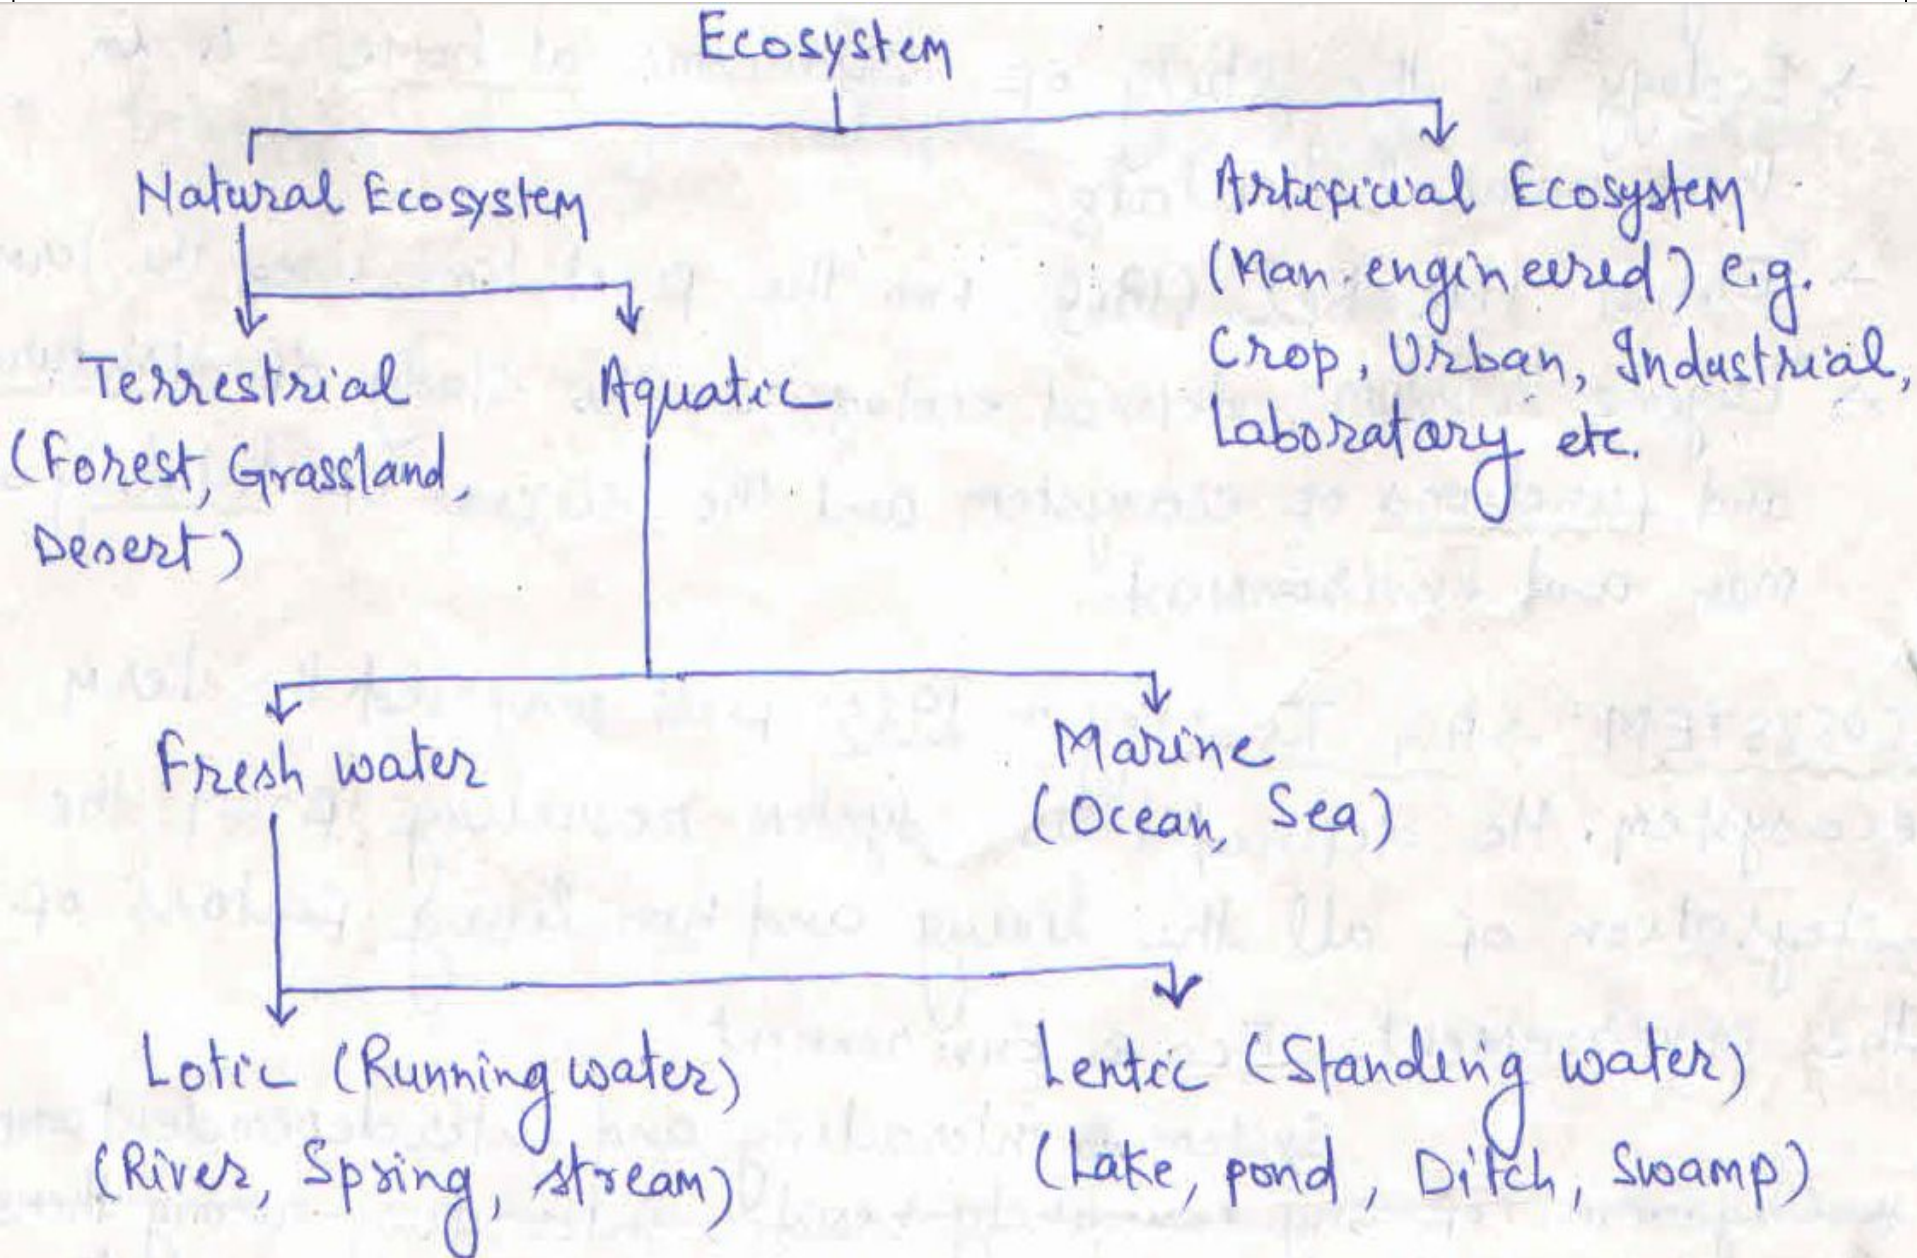 Ecosystem
Natural Ecosystem
Artificial Ecosystem
(Man engineered) e.g.
Crop, Urban, Industrial,
Laboratory etc.
Terrestrial
(Forest, Grassland,
Desert)
Aquatic
Fresh water
Marine
(Ocean, Sea)
Lotic (Running water)
(River, Spring, stream)
Lentic (Standing water)
(Lake, pond, Ditch, Swamp)